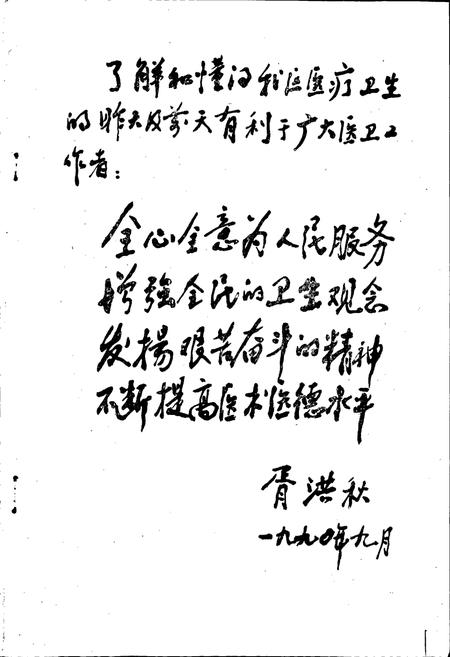 了解和懂得我区医疗卫生
的昨天及前天有利于广大医卫工
作者：
全心全意为人民服务
增强全民的卫生观念
发揚艰苦奋斗的精神
不断提高医术医德水平
胥洪秋
一九九〇年九月